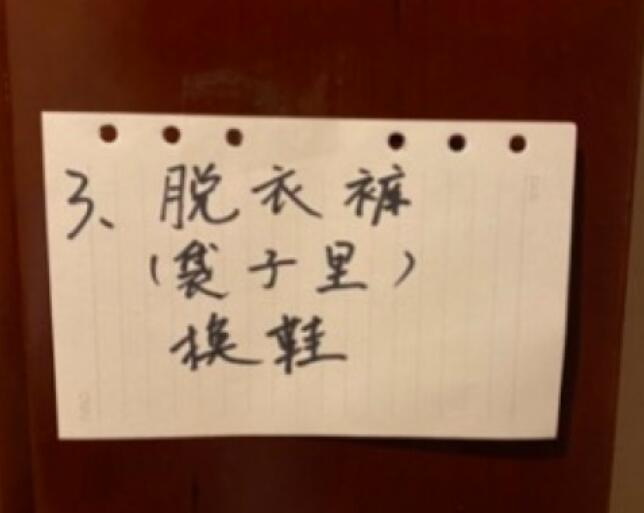 3、脱衣裤
(袋子里)
换鞋